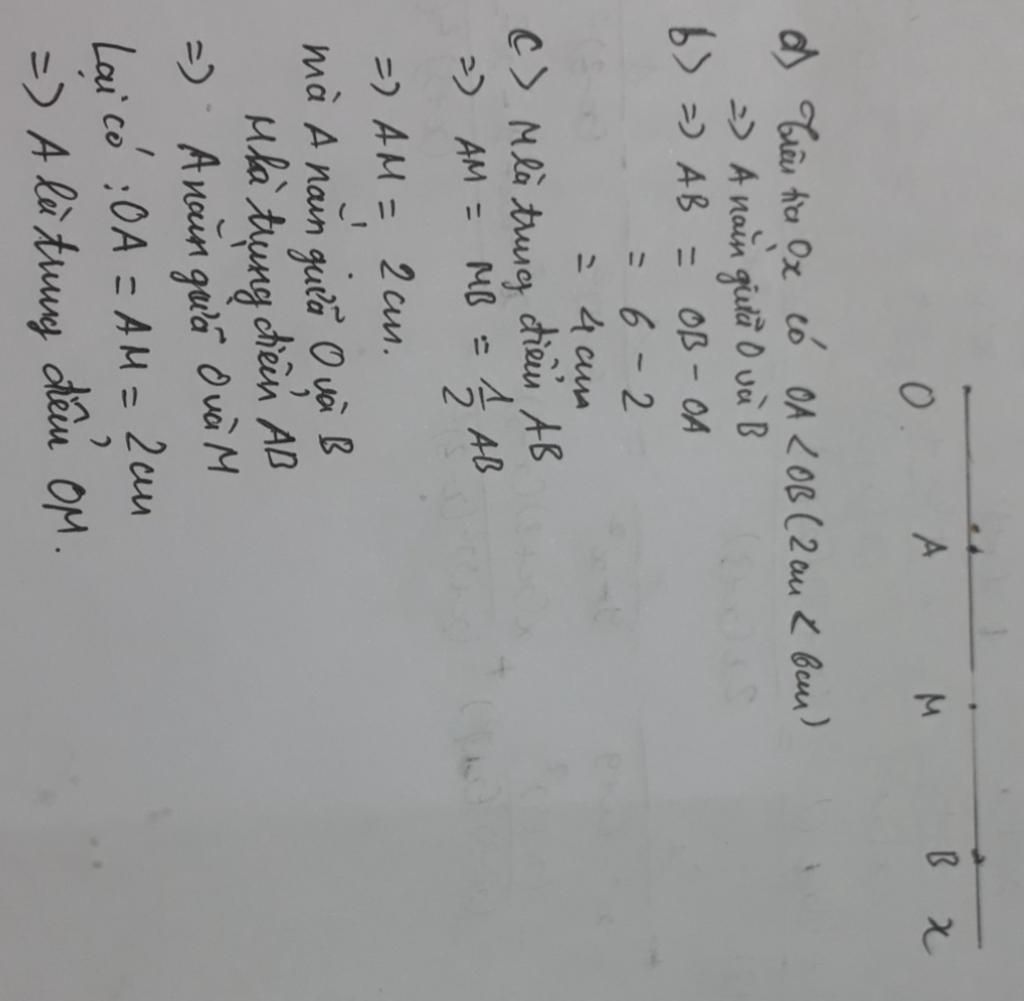 O A M B x
a) Trên tia Ox có OA < OB (2cm < 6cm)
=> A nằm giữa O và B
b) => AB = OB - OA
= 6 - 2
= 4cm
c) M là trung điểm AB
=> AM = MB = 1/2 AB
=> AM = 2cm.
mà A nằm giữa O và B
M là trung điểm AB
=> A nằm giữa O và M
Lại có : OA = AM = 2cm
=> A là trung điểm OM.